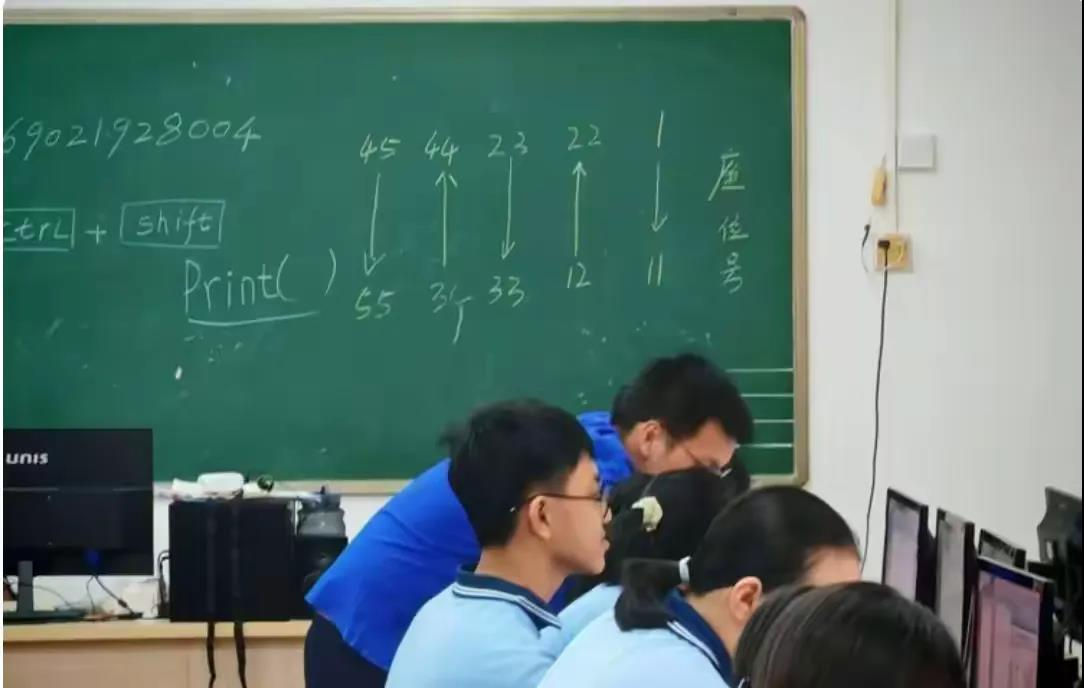 69021928004
ctrl + shift
Print( )
45 44 23 22 1
55 34 33 12 11
座位号
UNIS